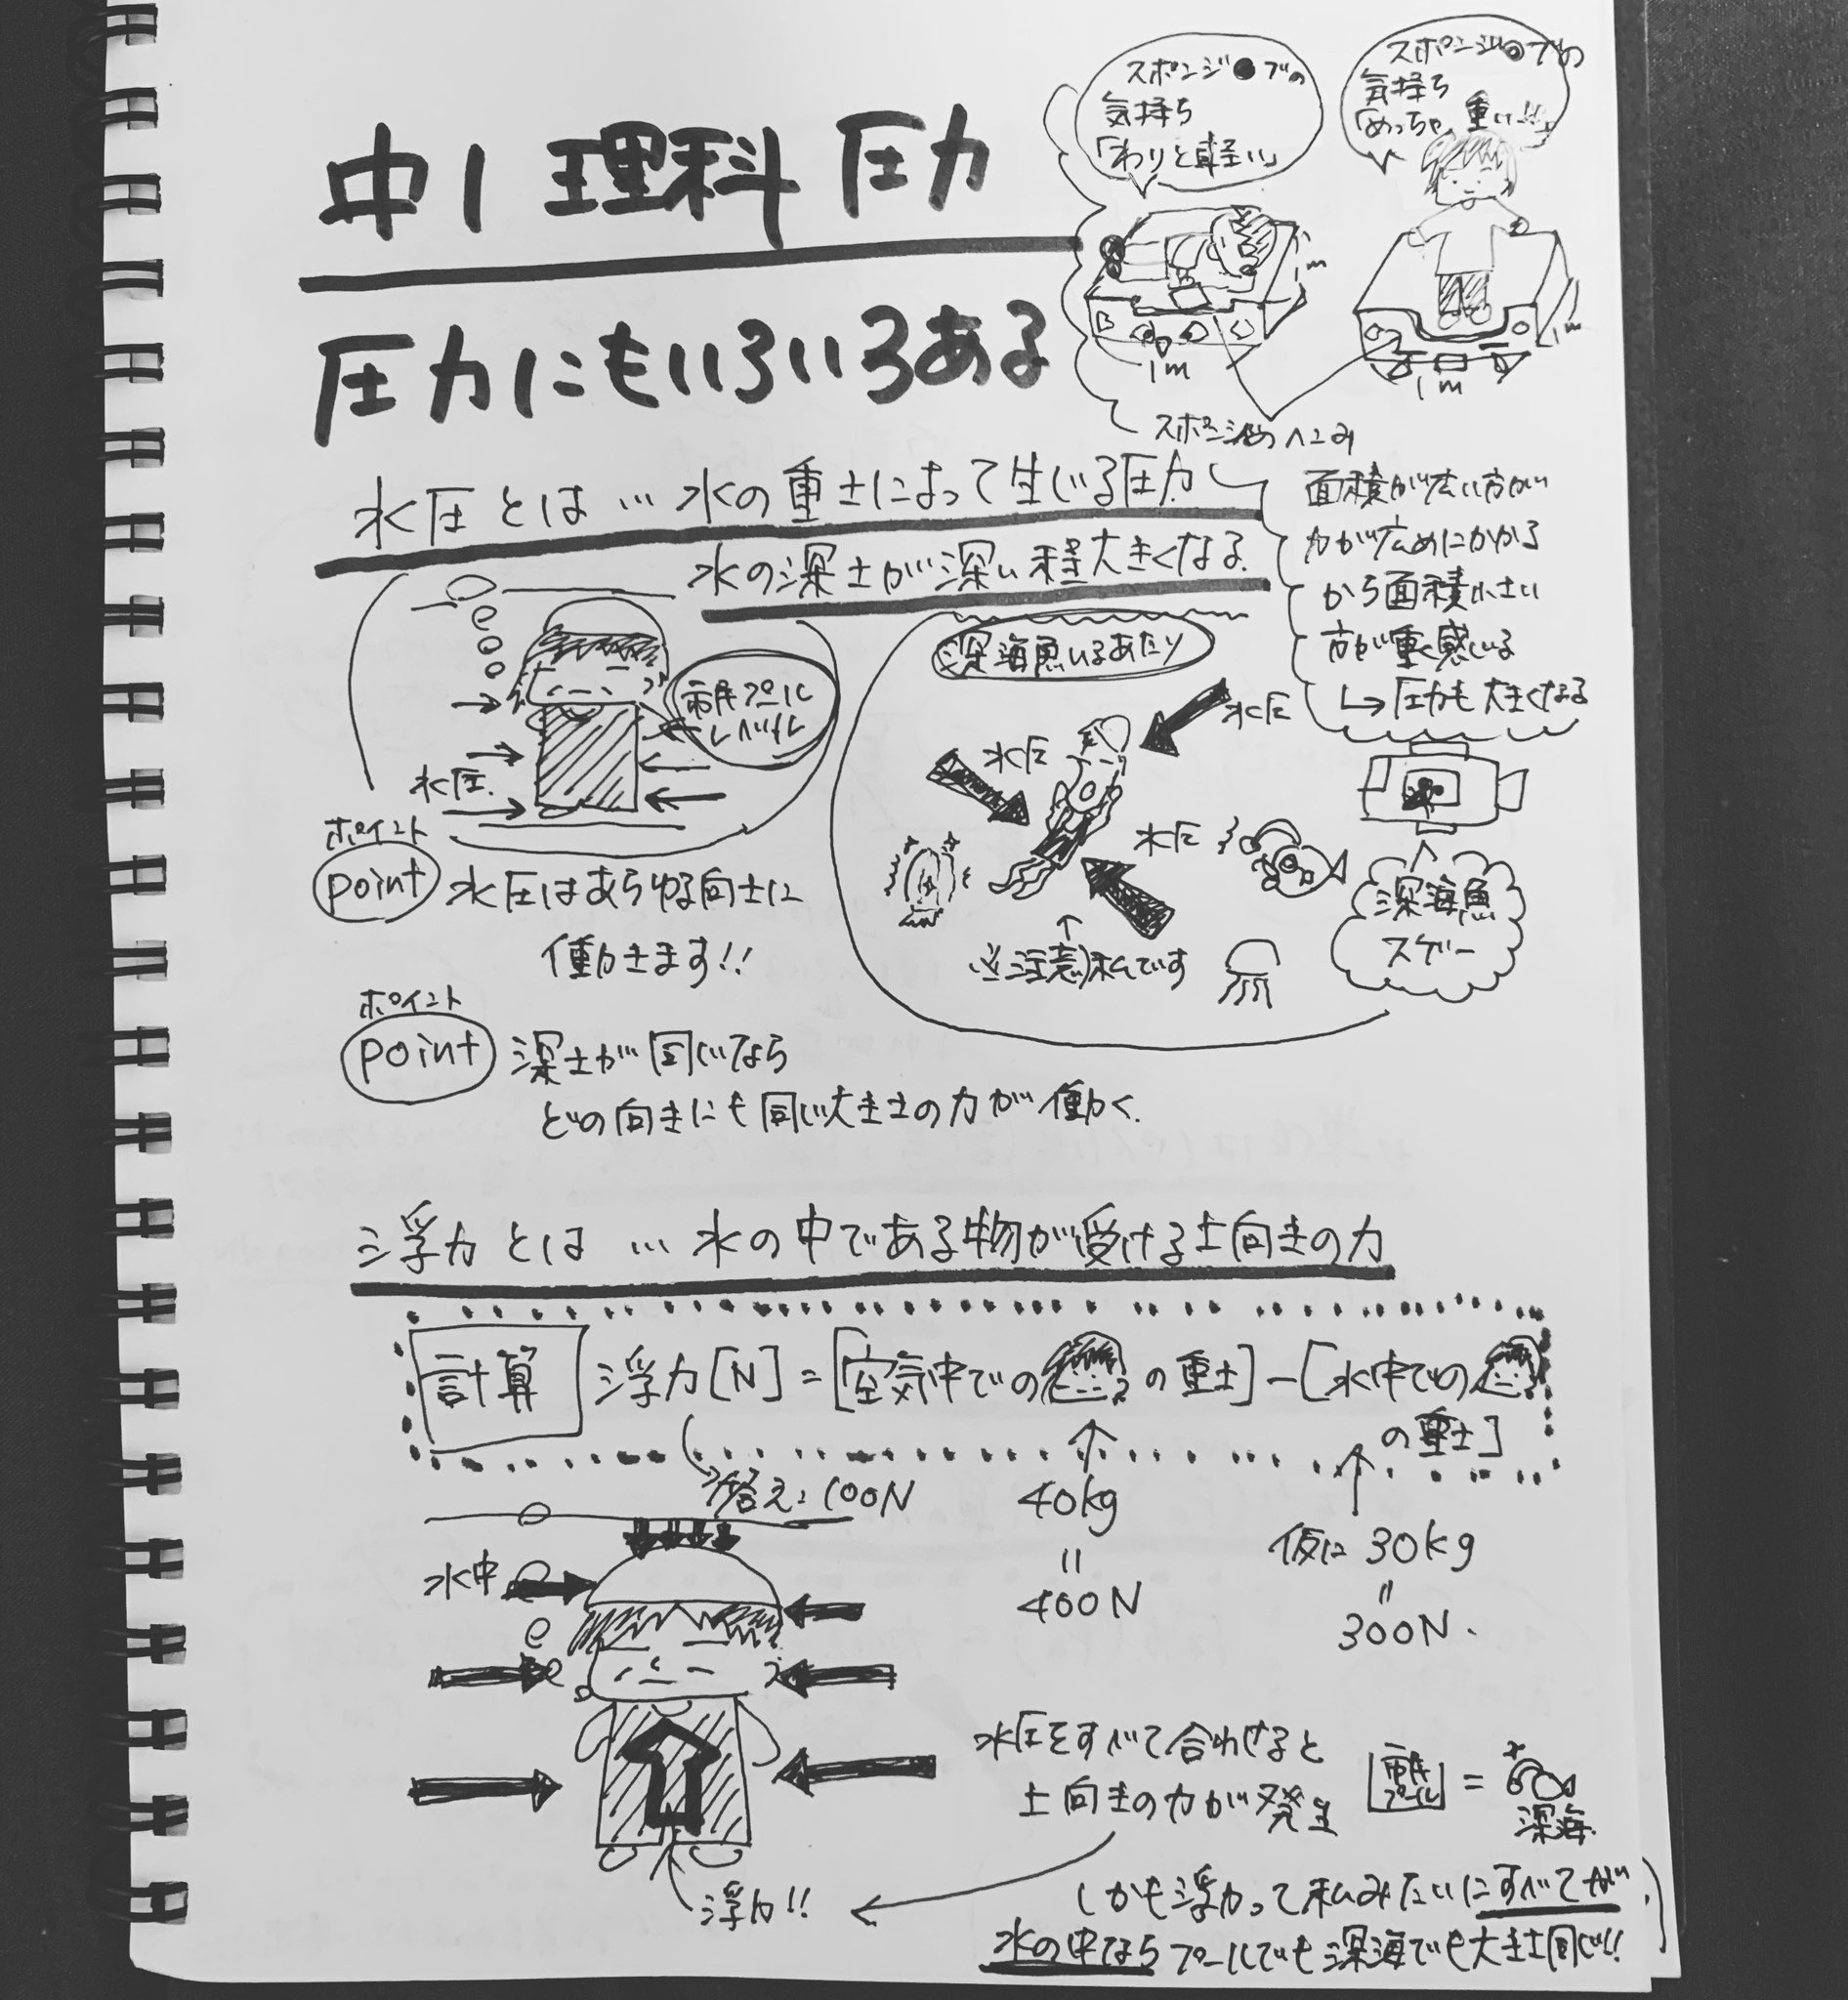 中1 理科 圧力
圧力にもいろいろある
スポンジ●ブの
気持ち
「わりと軽い」
スポンジ●ブの
気持ち
「めっちゃ、重い…」
1m
1m
1m
1m
スポンジのへこみ
水圧とは…水の重さによって生じる圧力
水の深さが深い程大きくなる
面積が広い方がい
力が広めにかかる
から面積小さい
方が重く感じる
↳圧力も大きくなる
市民プール
レベル
水圧
深海魚いるあたり
水圧
水圧
水圧
※注意)私です
深海魚
スゲー
ポイント
point 水圧はあらゆる向きに
働きます!!
ポイント
point 深さが同じなら
どの向きにも同じ大きさの力が働く.
浮力とは…水の中である物が受ける上向きの力
計算 浮力[N]=[空気中での の重さ]-[水中での
の重さ]
答え:100N
40kg
=
400N
仮に30kg
=
300N.
水中
水圧をすべて合わせると
上向きの力が発生
浮力!!
市民プール = 深海.
しかも浮力って私みたいにすべてが
水の中なら プールでも深海でも大きさ同じ!!